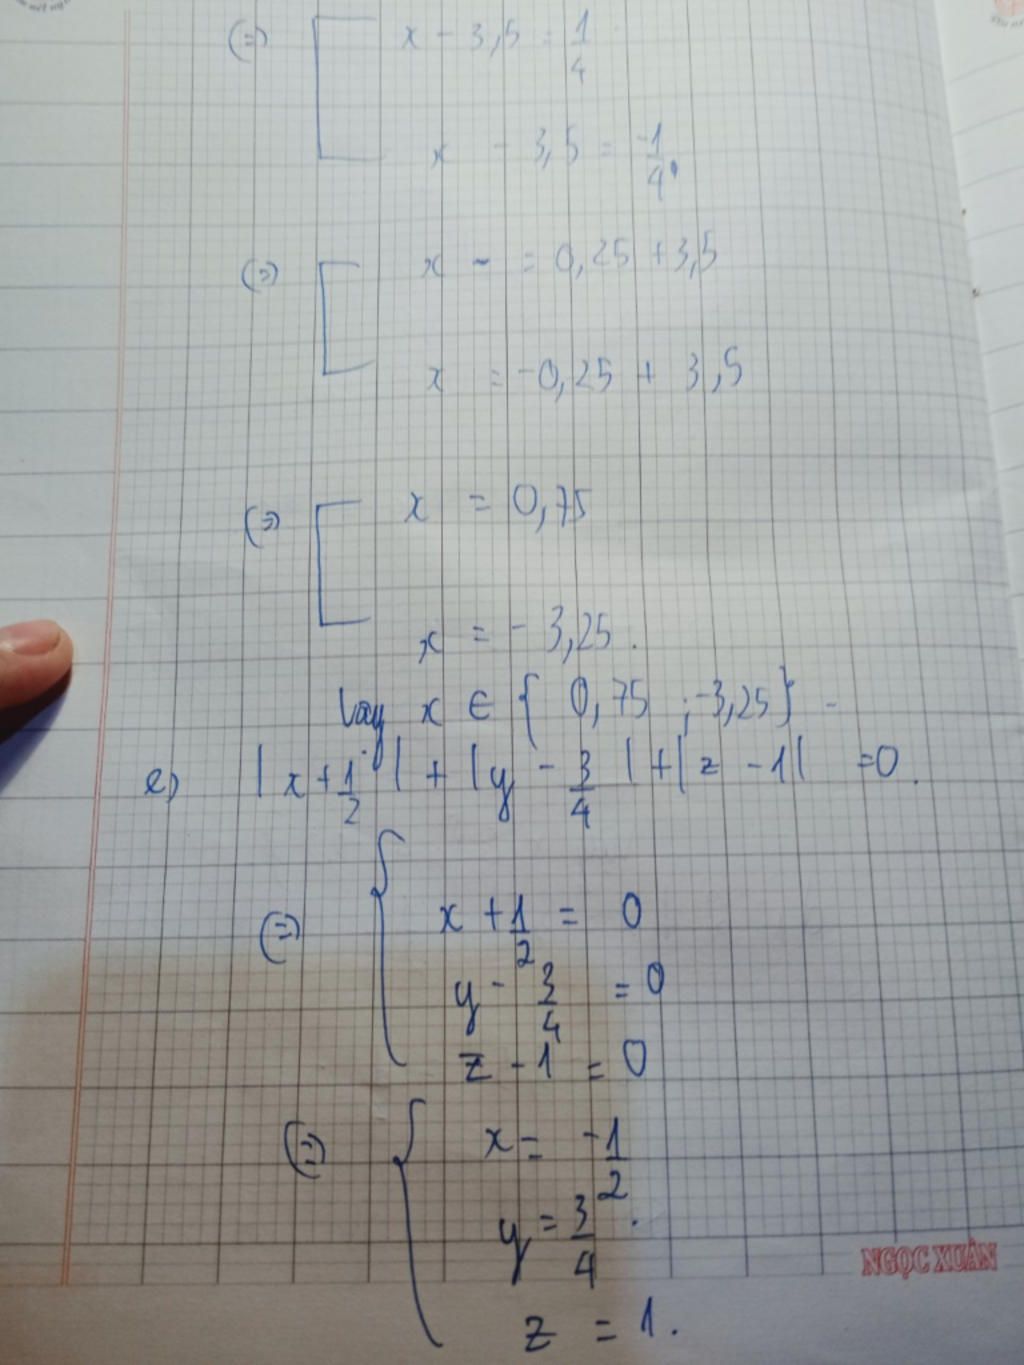 (=) [ x - 3,5 = 1/4
x - 3,5 = -1/4.
(=) [ x - = 0,25 + 3,5
x = -0,25 + 3,5
(=) [ x = 0,75
x = - 3,25.
Vay x ∈ { 0,75 ; -3,25} -
e) | x + 1/2 | + | y - 3/4 | + | z - 1 | = 0.
(=) { x + 1/2 = 0
y - 3/4 = 0
z - 1 = 0
(=) { x = -1/2
y = 3/4.
NGỌC XUÂN
z = 1.